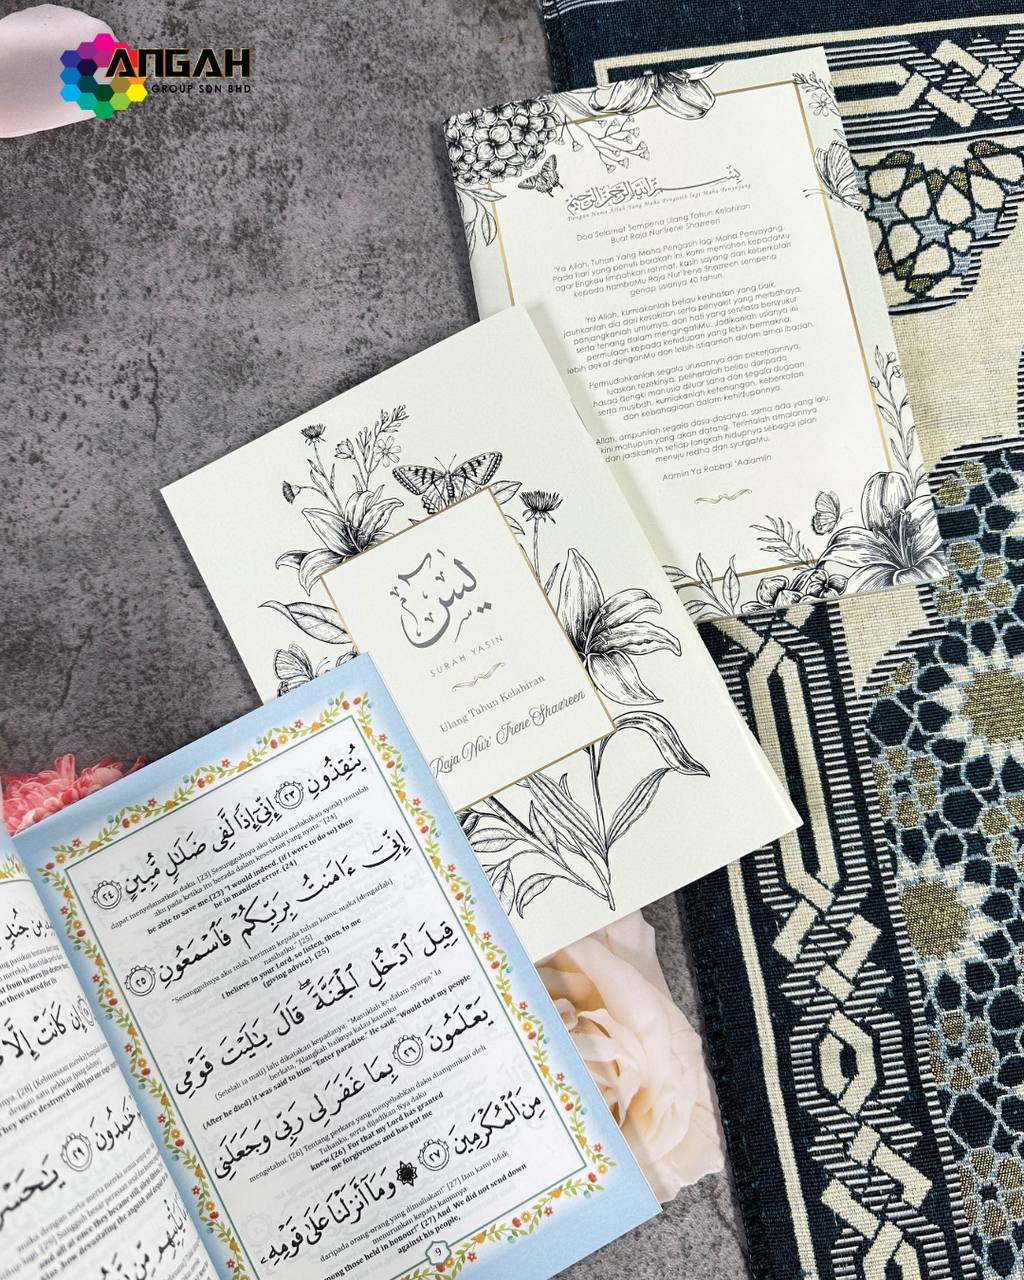 ANGAH
GROUP SDN BHD
بِسْمِ اللَّهِ الرَّحْمَنِ الرَّحِيمِ
Dengan Nama Allah Yang Maha Pengasih lagi Maha Penyayang
Doa Selamat Sempena Ulang Tahun Kelahiran
Buat Raja Nur'Irene Shazreen
"Ya Allah, Tuhan Yang Maha Pengasih lagi Maha Penyayang,
Pada hari yang penuh barakah ini, kami memohon kepadaMu
agar Engkau limpahkan rahmat, kasih sayang dan keberkatan
kepada hambaMu Raja Nur'Irene Shazreen sempena
genap usianya 40 tahun.
Ya Allah, kurniakanlah beliau kesihatan yang baik,
jauhkanlah dia dari kesakitan serta penyakit yang merbahaya,
panjangkanlah umurnya, dan hati yang sentiasa bersyukur
serta tenang dalam mengingatiMu. Jadikanlah usianya ini
permulaan kepada kehidupan yang lebih bermakna,
lebih dekat denganMu dan lebih istiqamah dalam amal ibadah.
Permudahkanlah segala urusannya dan pekerjaannya,
luaskan rezekinya, peliharalah beliau daripada
hasad dengki manusia diluar sana dan segala dugaan
serta musibah, kurniakanlah ketenangan, keberkatan
dan kebahagiaan dalam kehidupannya.
Allah, ampunilah segala dosa-dosanya, sama ada yang lalu,
kini mahupun yang akan datang. Terimalah amalannya
dan jadikanlah setiap langkah hidupnya sebagai jalan
menuju redha dan syurgaMu.
Aamiin Ya Rabbal 'Aalamiin
يس
SURAH YASIN
Ulang Tahun Kelahiran
Raja Nur' Irene Shazreen
يُنقِذُونِ ٢٣ إِنِّىٓ إِذًا لَّفِى ضَلَـٰلٍ مُّبِينٍ ٢٤
dapat menyelamatkan daku. [23] Sesungguhnya aku (kalau melakukan syirik) tentulah
aku pada ketika itu berada dalam kesesatan yang nyata." [24]
be able to save me.(23) "I would indeed, (if I were to do so) then
be in manifest error. (24)
إِنِّىٓ ءَامَنتُ بِرَبِّكُمْ فَٱسْمَعُونِ ٢٥
"Sesungguhnya aku telah beriman kepada tuhan kamu, maka (dengarlah)
nasihatku." [25]
I believe in your Lord, so listen, then, to me
(giving advice). (25)
قِيلَ ٱدْخُلِ ٱلْجَنَّةَ ۖ قَالَ يَـٰلَيْتَ قَوْمِى
(Setelah ia mati) lalu dikatakan kepadanya: "Masuklah ke dalam syurga." Ia
berkata, "Alangkah baiknya kalau kaumku
(After he died) it was said to him: "Enter paradise." He said: "Would that my people
يَعْلَمُونَ ٢٦ بِمَا غَفَرَ لِى رَبِّى وَجَعَلَنِى
mengetahui. [26] Tentang perkara yang menyebabkan daku diampunkan oleh
Tuhanku, serta dijadikan-Nya daku
knew.(26) For that my Lord has granted
me forgiveness and has put me
مِنَ ٱلْمُكْرَمِينَ ٢٧ وَمَآ أَنزَلْنَا عَلَىٰ قَوْمِهِۦ
daripada orang-orang yang dimuliakan!" [27] Dan kami tidak
menurunkan kepada kaumnya
among those held in honour!" (27) And We did not send down
against his people,
9
إِن كَانَتْ إِلَّا
with satu pekikan
They were destroyed with
خَـٰمِدُونَ ٢٩